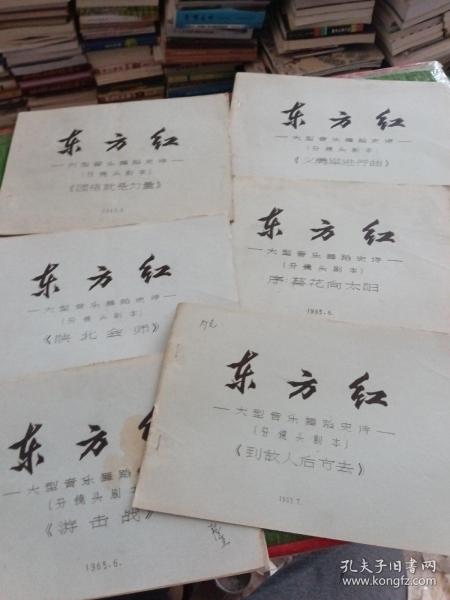 东方红
—大型音乐舞蹈史诗—
(分镜头剧本)
《团结就是力量》
1965.6
东方红
—大型音乐舞蹈史诗—
(分镜头剧本)
《义勇军进行曲》
东方红
—大型音乐舞蹈史诗—
(分镜头剧本)
《陕北会师》
东方红
—大型音乐舞蹈史诗—
(分镜头剧本)
序·葵花向太阳
1965.6.
东方红
—大型音乐舞蹈史诗
(分镜头剧本
《游击战》
1965.6.
东方红
—大型音乐舞蹈史诗—
(分镜头剧本)
《到敌人后方去》
1965.7.
孔夫子旧书网
www.kongfz.com